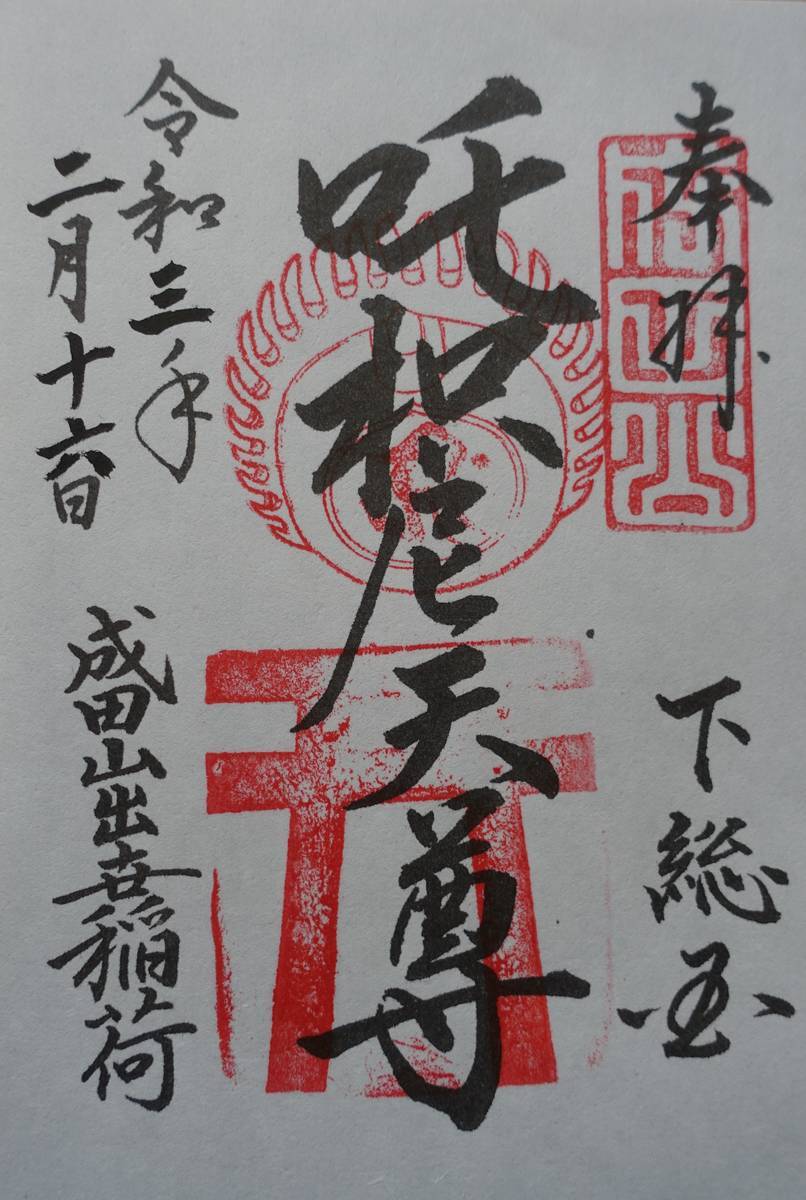 奉拝
下総国
吒枳尼天尊
令和三年
二月十六日
成田山出世稲荷